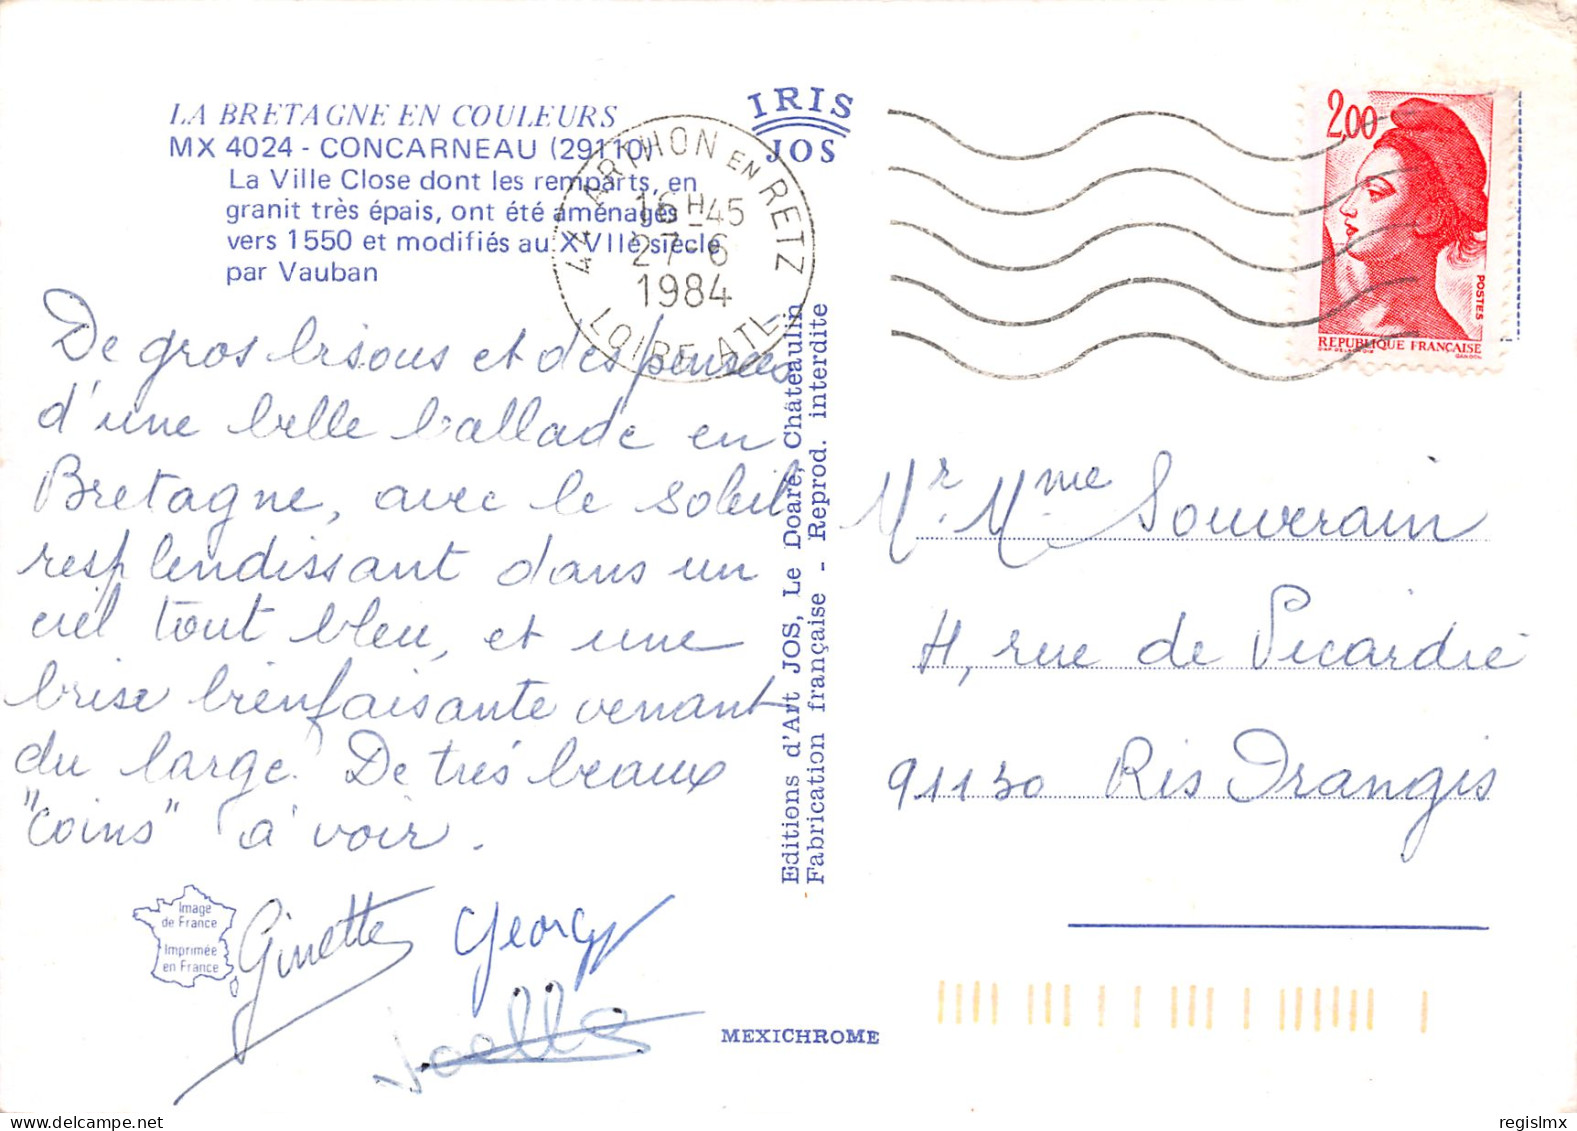 LA BRETAGNE EN COULEURS
MX 4024 - CONCARNEAU (29110)
La Ville Close dont les remparts, en
granit très épais, ont été aménagés
vers 1550 et modifiés au XVIIe siècle
par Vauban
IRIS
JOS
44 ARTHON EN RETZ
16 H 45
27-6
1984
LOIRE-ATL.
2,00
POSTES
REPUBLIQUE FRANÇAISE
De gros bisous et des pensées
d'une belle ballade en
Bretagne, avec le soleil
resplendissant dans un
ciel tout bleu, et une
brise bienfaisante venant
du large. De très beaux
"coins" à voir.
Ginette Georgy
Joelle
Image
de France
Imprimée
en France
Editions d'Art JOS, Le Doaré, Châteaulin
Fabrication française - Reprod. interdite
Mr. Mme Souverain
H, rue de Picardie
91130 Ris Orangis
MEXICHROME
regislmx